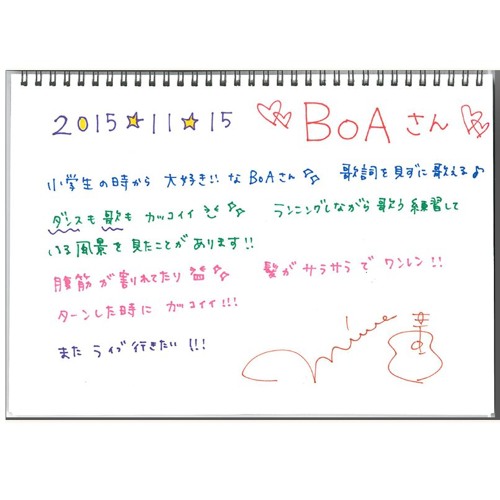 2015☆11☆15 BoAさん
小学生の時から 大好き!! な BoAさん 歌詞を見ずに歌える♪
ダンスも歌も カッコイイ ランニングしながら 歌う練習して
いる風景を見たことがあります!!
腹筋が割れてたり 髪がサラサラで ワンレン!!
ターンした時に カッコイイ!!!
また ライブ行きたい!!!
miwa